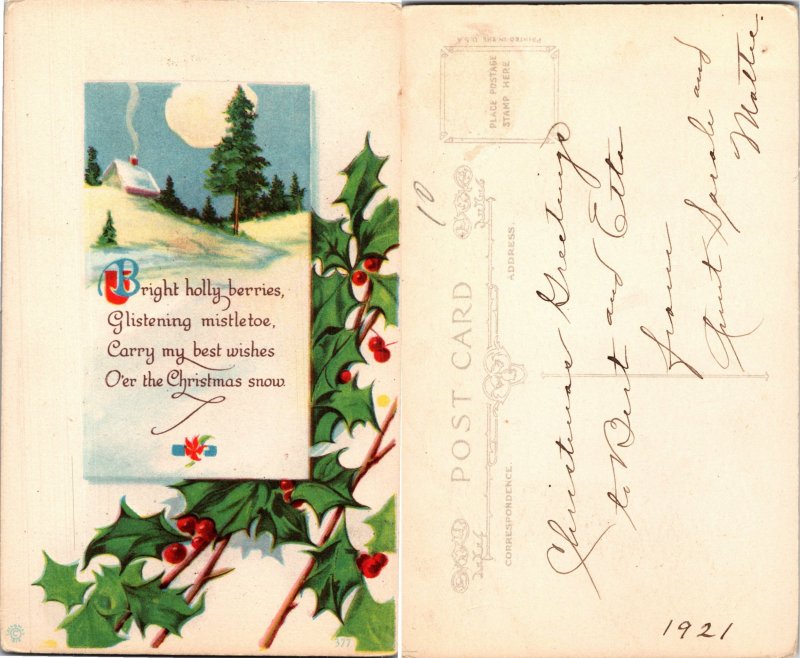 Bright holly berries,
Glistening mistletoe,
Carry my best wishes
O'er the Christmas snow.
377
PRINTED IN THE U.S.A.
PLACE POSTAGE
STAMP HERE
10
POST CARD
ADDRESS
CORRESPONDENCE
Christmas Greetings
to Bert and Etta
from
Aunt Sarah and
Mattie.
1921